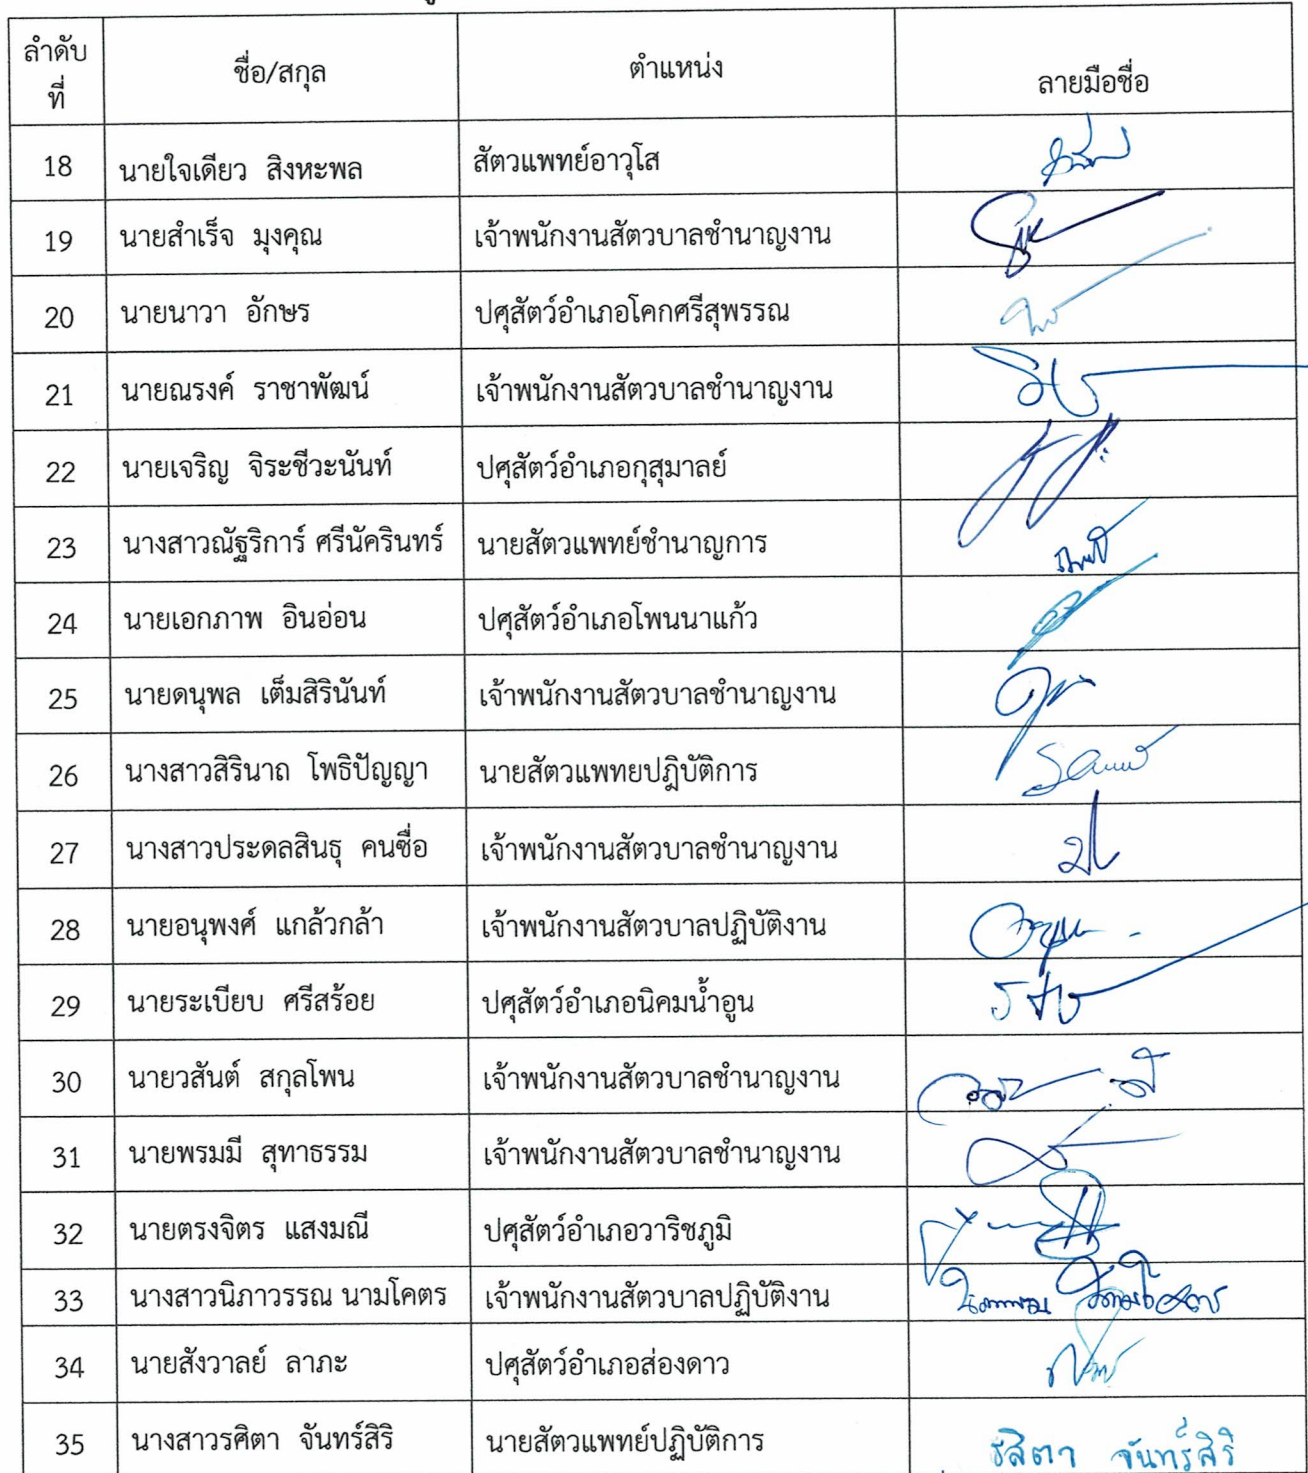 ลำดับ
ที่
ชื่อ/สกุล
ตำแหน่ง
ลายมือชื่อ
18 นายใจเดียว สิงหะพล สัตวแพทย์อาวุโส
19 นายสำเร็จ มุงคุณ เจ้าพนักงานสัตวบาลชำนาญงาน
20 นายนาวา อักษร ปศุสัตว์อำเภอโคกศรีสุพรรณ
21 นายณรงค์ ราชาพัฒน์ เจ้าพนักงานสัตวบาลชำนาญงาน
22 นายเจริญ จิระชีวะนันท์ ปศุสัตว์อำเภอกุสุมาลย์
23 นางสาวณัฐริการ์ ศรีนัครินทร์ นายสัตวแพทย์ชำนาญการ
24 นายเอกภาพ อินอ่อน ปศุสัตว์อำเภอโพนนาแก้ว
25 นายดนุพล เต็มสิรินันท์ เจ้าพนักงานสัตวบาลชำนาญงาน
26 นางสาวสิรินาถ โพธิปัญญา นายสัตวแพทยปฎิบัติการ
27 นางสาวประดลสินธุ คนซื่อ เจ้าพนักงานสัตวบาลชำนาญงาน
28 นายอนุพงศ์ แกล้วกล้า เจ้าพนักงานสัตวบาลปฏิบัติงาน
29 นายระเบียบ ศรีสร้อย ปศุสัตว์อำเภอนิคมน้ำอูน
30 นายวสันต์ สกุลโพน เจ้าพนักงานสัตวบาลชำนาญงาน
31 นายพรมมี สุทาธรรม เจ้าพนักงานสัตวบาลชำนาญงาน
32 นายตรงจิตร แสงมณี ปศุสัตว์อำเภอวาริชภูมิ
33 นางสาวนิภาวรรณ นามโคตร เจ้าพนักงานสัตวบาลปฏิบัติงาน
34 นายสังวาลย์ ลาภะ ปศุสัตว์อำเภอส่องดาว
35 นางสาวรศิตา จันทร์สิริ นายสัตวแพทย์ปฏิบัติการ รสิตา จันทร์สิริ